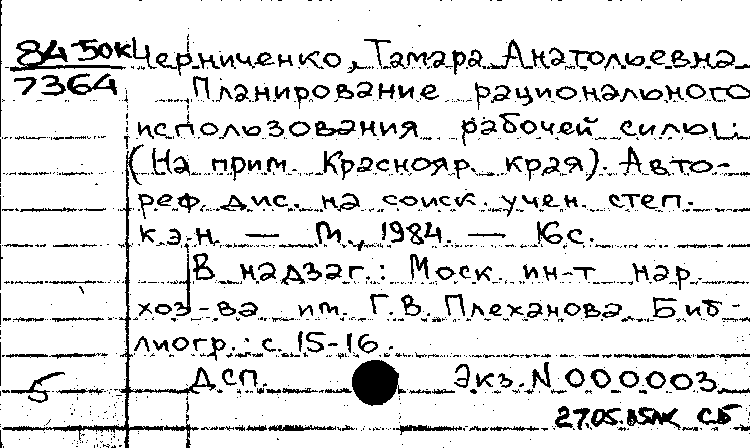 84-50к Черниченко, Тамара Анатольевна
7364 Планирование рационального
использования рабочей силы:
(На прим. Краснояр. края). Авто-
реф. дис. на соиск. учен. степ.
к.э.н. — М., 1984. — 16 с.
В надзаг.: Моск. ин-т нар.
хоз-ва им. Г.В. Плеханова. Биб-
лиогр.: с. 15-16.
5 ДСП. Экз. N 000003
27.05.85 СБ